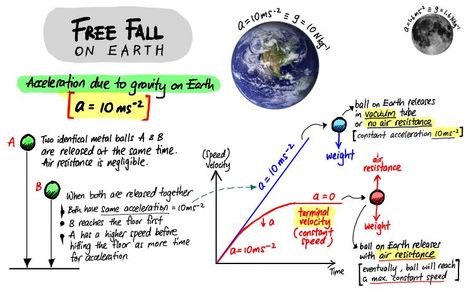 FREE FALL
ON EARTH
a = 10 ms⁻² ≡ g = 10 Nkg⁻¹
Acceleration due to gravity on Earth
[a = 10 ms⁻²]
A
Two identical metal balls A & B
are released at the same time.
Air resistance is negligible.
B
When both are released together
Both have same acceleration = 10ms⁻²
B reaches the floor first
A has a higher speed before
hitting the floor as more time
for acceleration
(Speed)
Velocity
a = 10 ms⁻²
a = 10 ms⁻²
↓ a
a = 0
terminal
velocity
(constant
speed)
Time
weight
ball on Earth releases
in vacuum tube
or no air resistance
[constant acceleration 10ms⁻²]
air
resistance
weight
ball on Earth releases
with air resistance
[eventually, ball will reach
a max. constant speed]